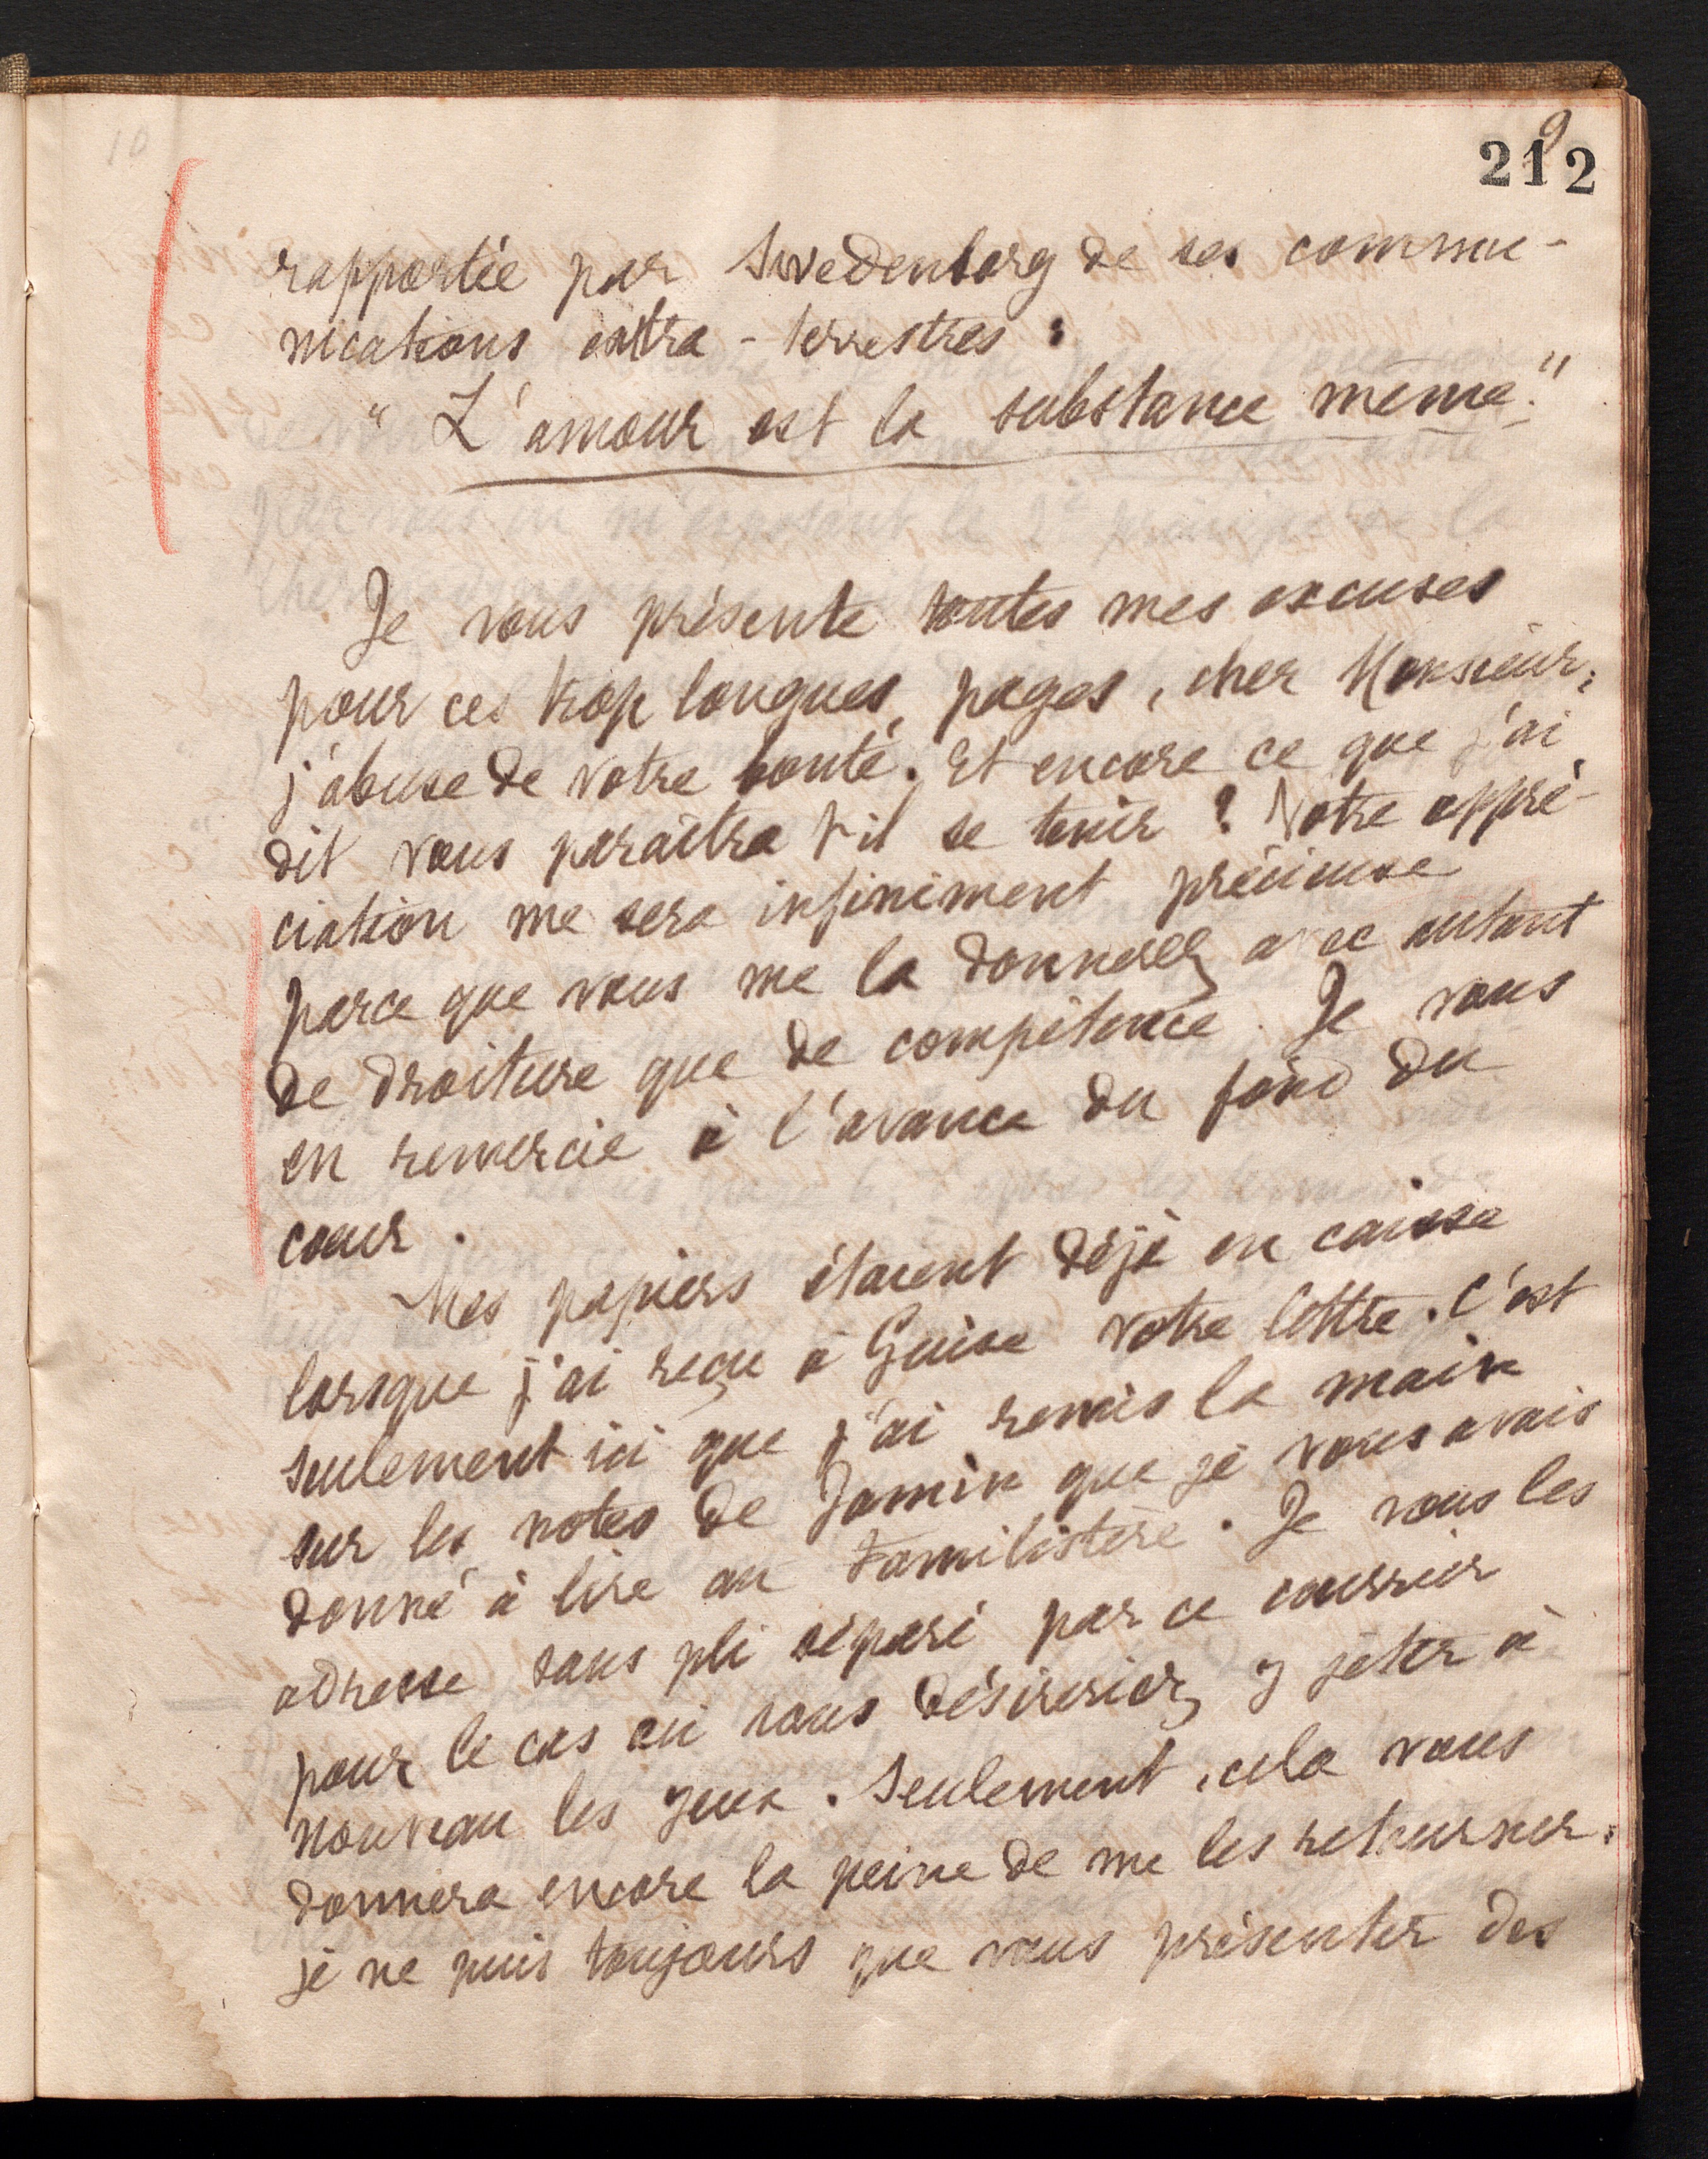 10
9
212
rapportée par Swedenborg de ses commu-
nications extra-terrestres :
"L'amour est la substance même."
Je vous présente toutes mes excuses
pour ces trop longues, pages, cher Monsieur,
j'abuse de votre bonté. Et encore ce que j'ai
dit vous paraîtra t-il se tenir ? Votre appré-
ciation me sera infiniment précieuse
parce que vous me la donnerez avec autant
de droiture que de compétence. Je vous
en remercie à l'avance du fond du
coeur.
Mes papiers étaient déjà en caisse
lorsque j'ai reçu à Guise votre lettre. C'est
seulement ici que j'ai remis la main
sur les notes de Jamin que je vous avais
donné à lire au Familistère. Je vous les
adresse sous pli séparé par ce courrier
pour le cas où vous désireriez y jeter à
nouveau les yeux. Seulement, cela vous
donnera encore la peine de me les retourner.
je ne puis toujours que vous présenter des